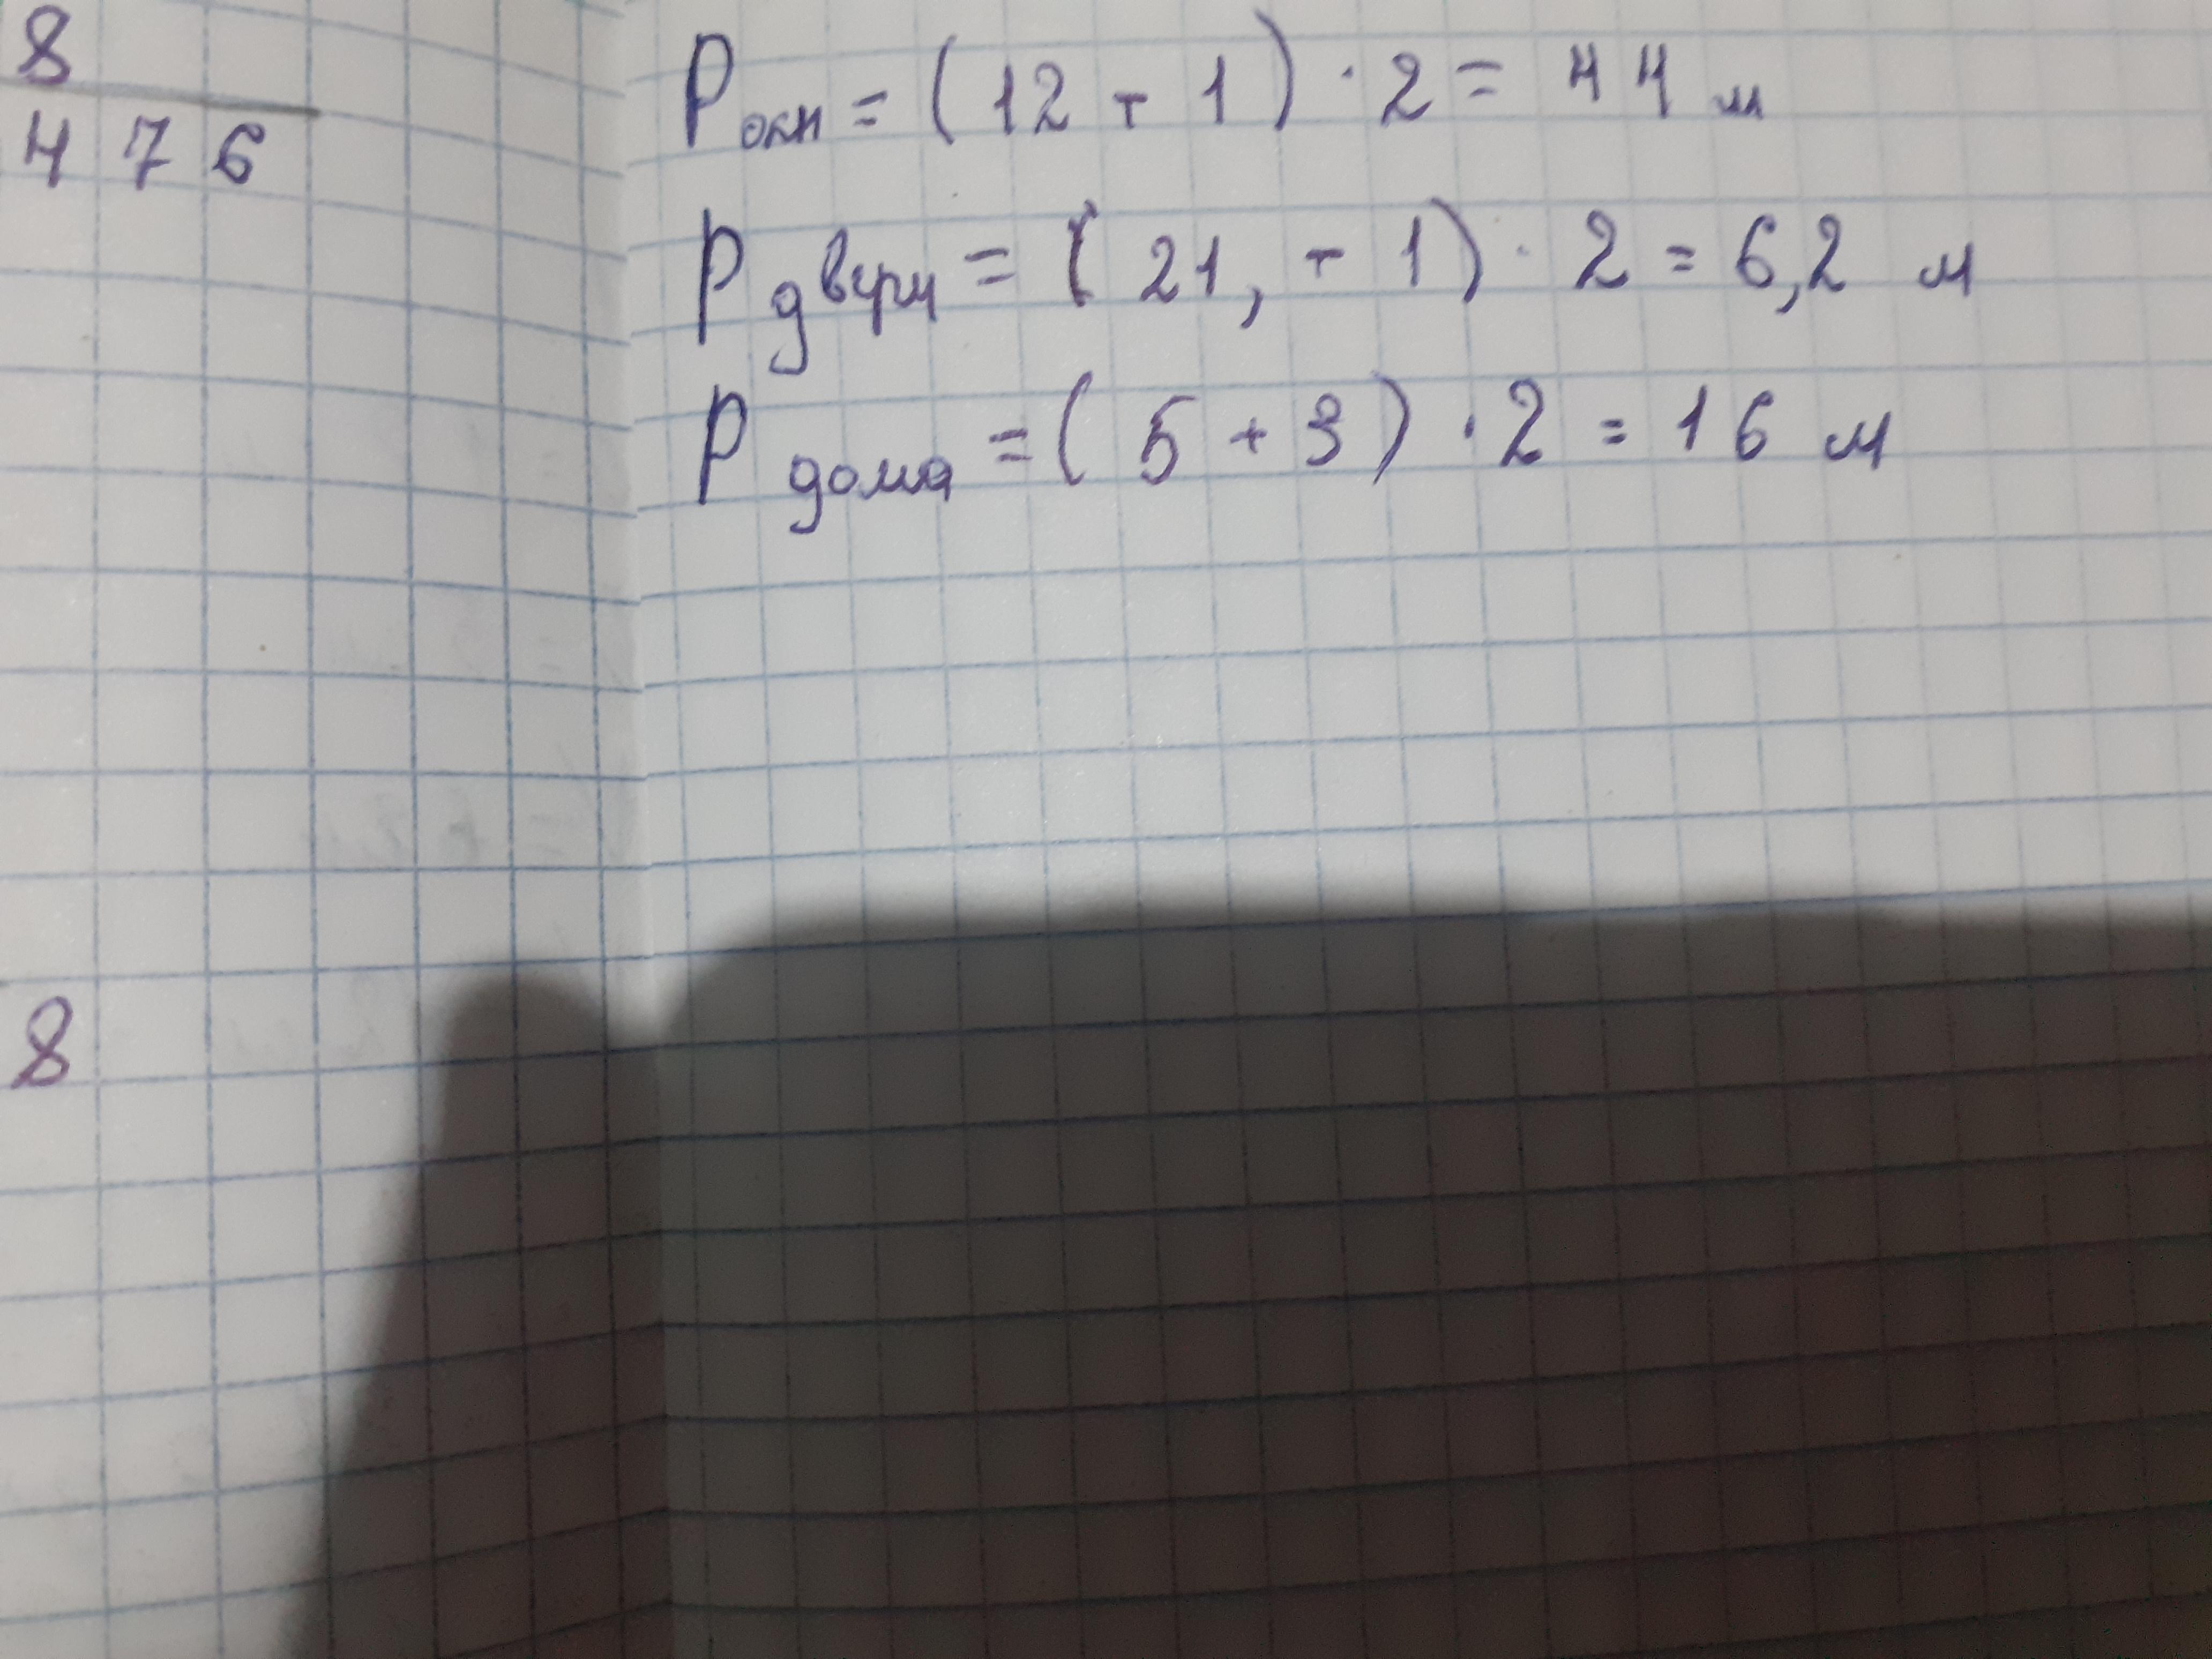 8
4 7 6
8
Pокн = (12 + 1) · 2 = 44 м
P двери = (21, + 1) · 2 = 6,2 м
P дома = (5 + 3) · 2 = 16 м